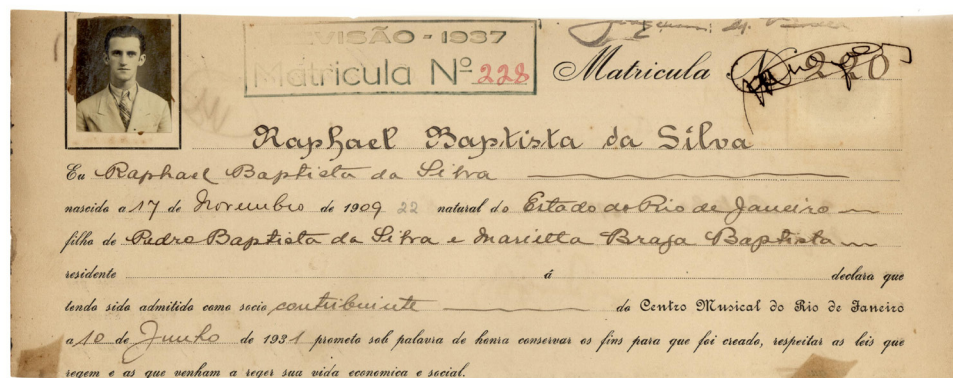 REVISÃO - 1937
Matricula Nº 228
Matricula N 220
Raphael Baptista da Silva
Eu Raphael Baptista da Silva
nascido a 17 de Novembro de 1909 22 natural do Estado do Rio de Janeiro
filho de Pedro Baptista da Silva e Marietta Braga Baptista
residente á declara que
tendo sido admitido como socio contribuinte do Centro Musical do Rio de Janeiro
a 10 de Junho de 1931 prometo sob palavra de honra conservar os fins para que foi creado, respeitar as leis que
regem e as que venham a reger sua vida economica e social.